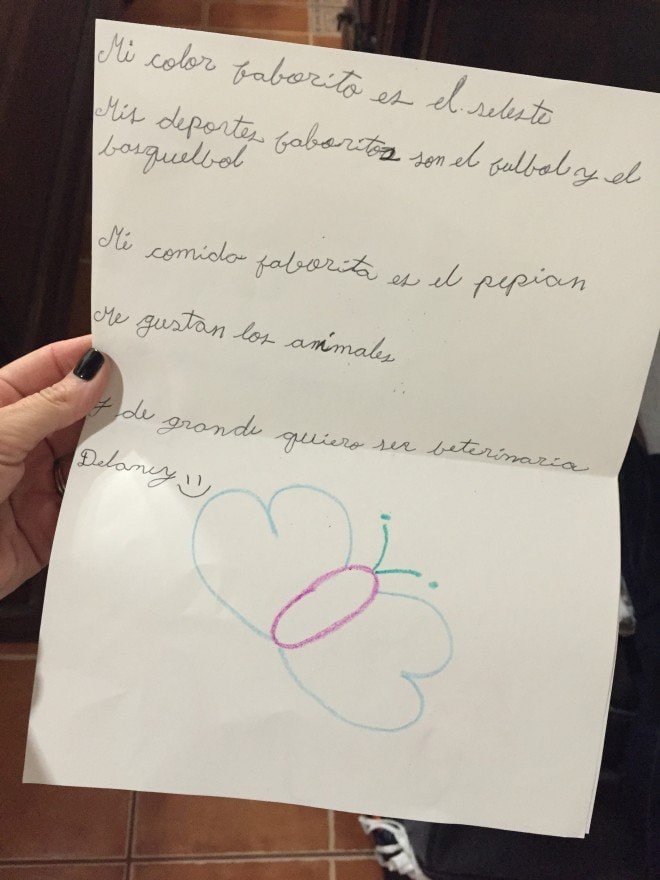 Mi color faborito es el seleste
Mis deportes faboritos son el fulbol y el
basquelbol
Mi comida faborita es el pepian
Me gustan los animales
Y de grande quiero ser beterinaria
Delaney